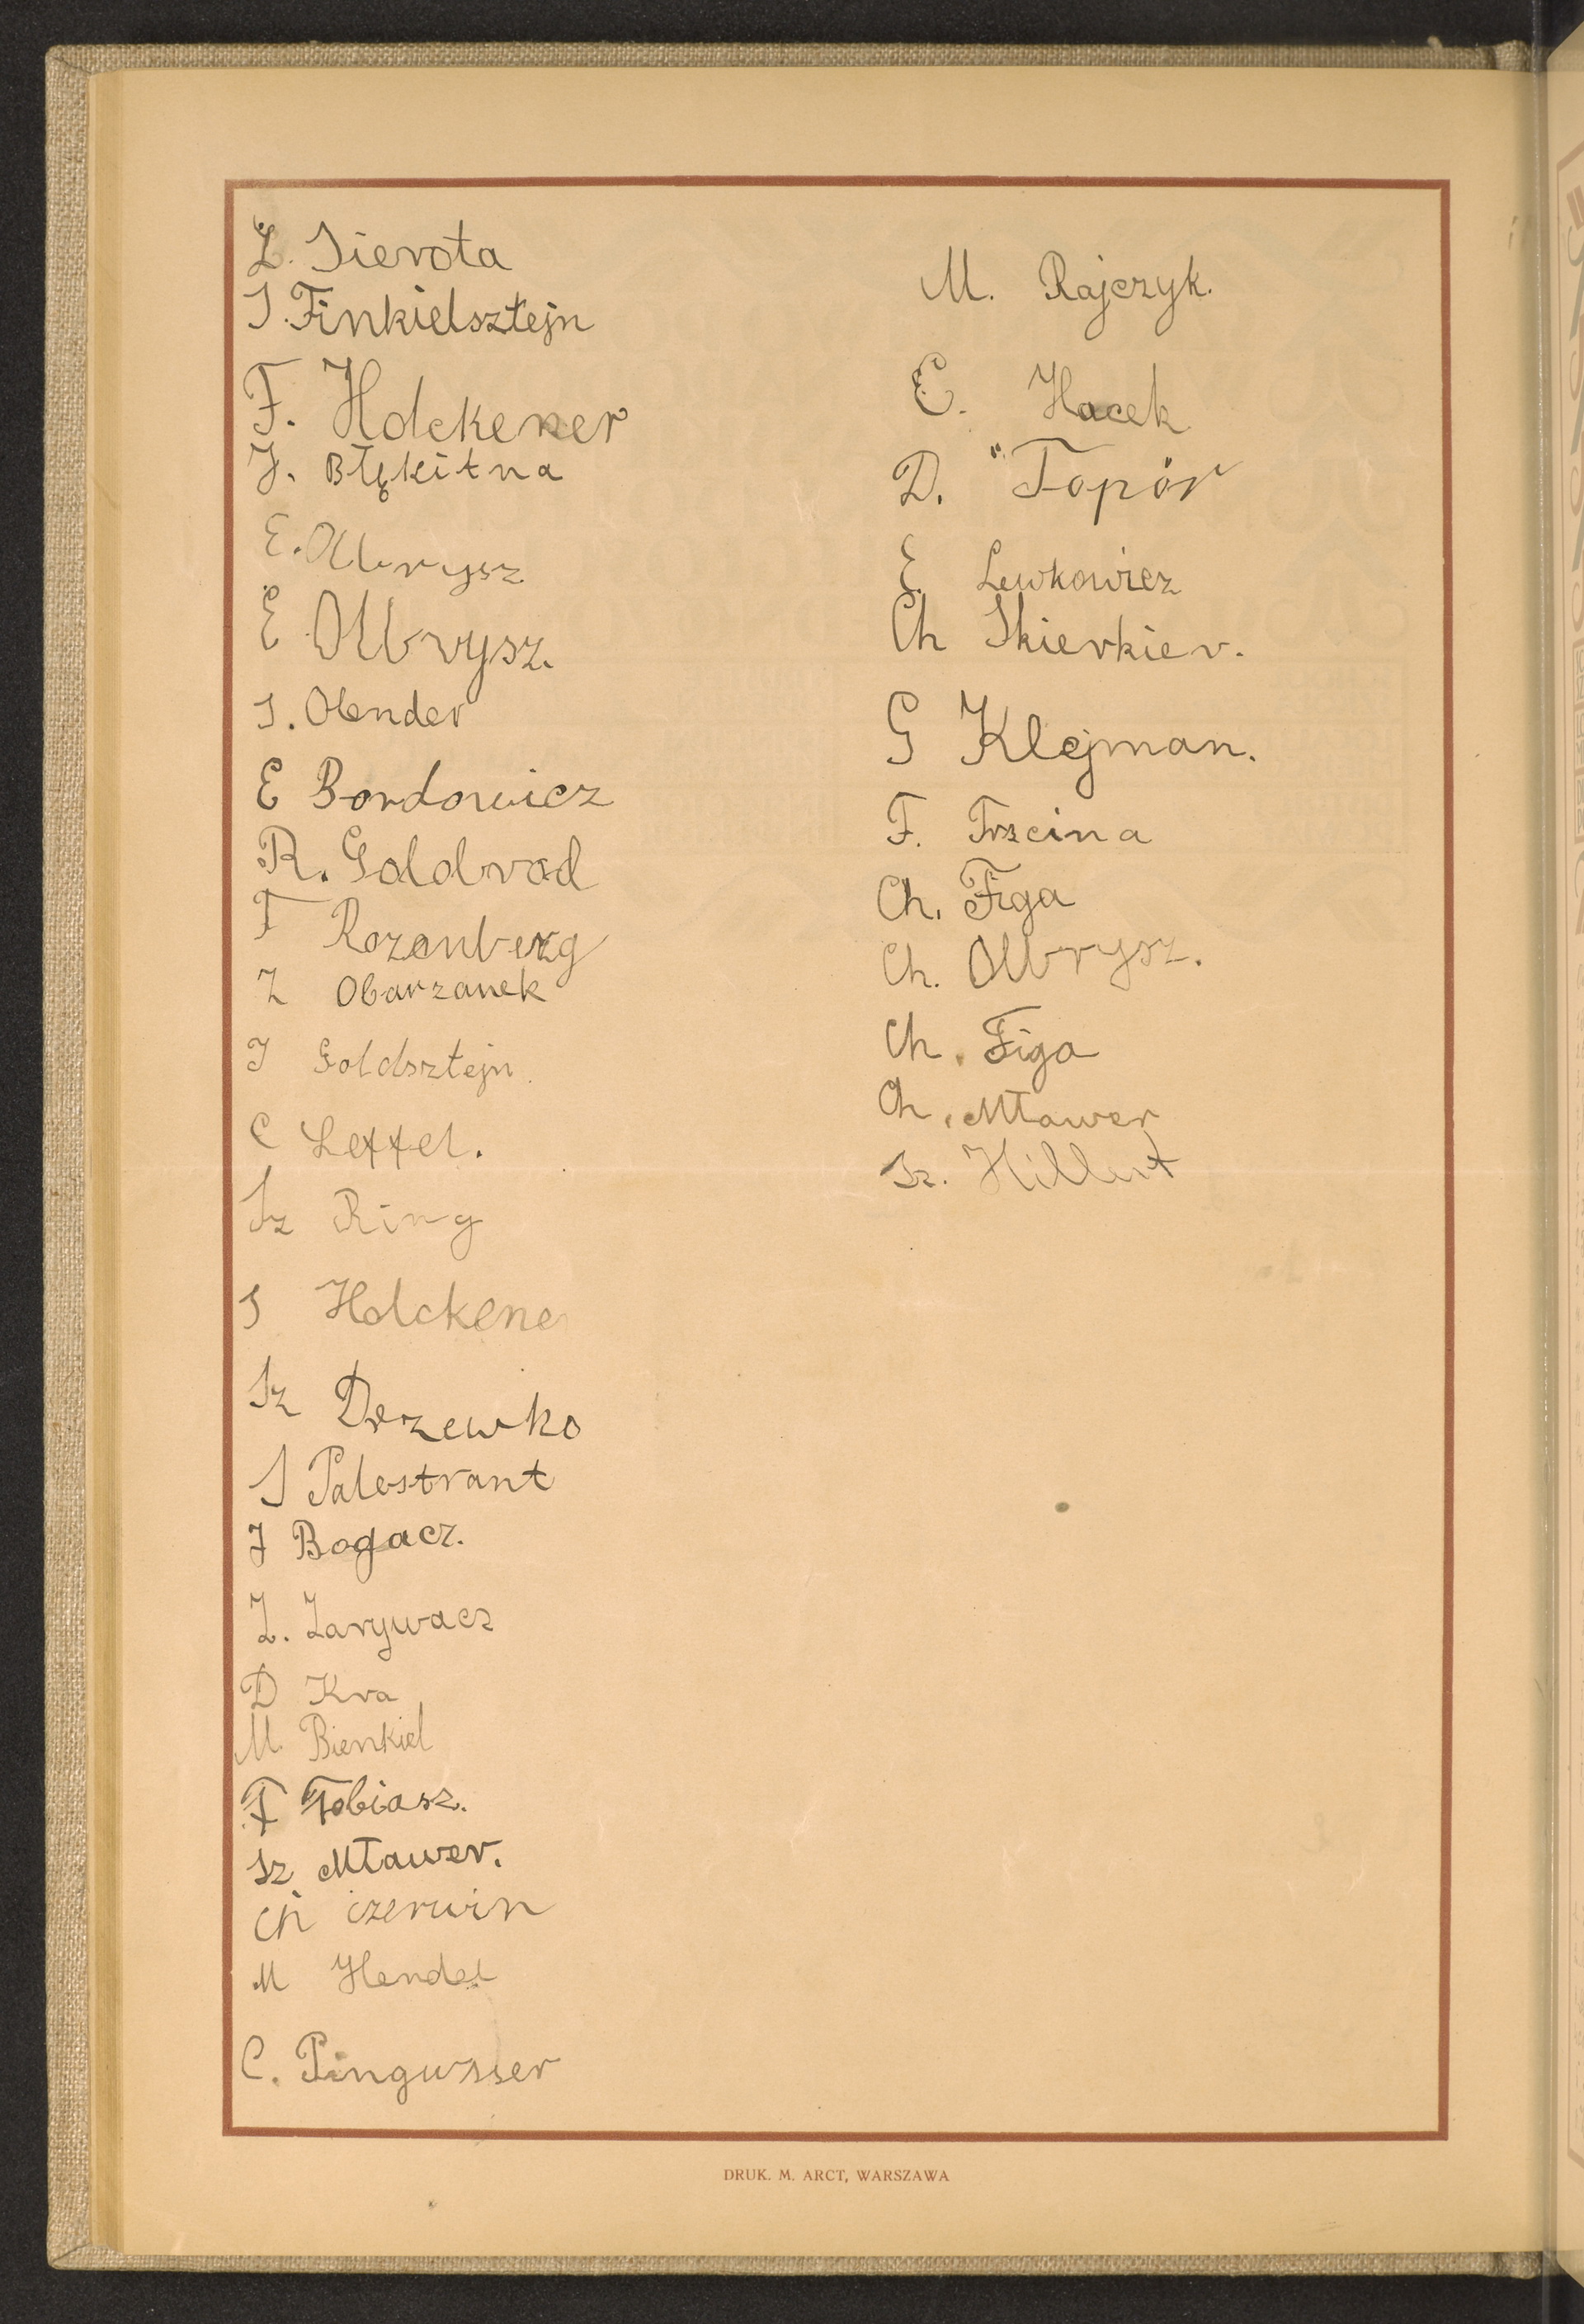 Z. Sierota
S. Finkielsztejn
F. Holckener
J. Błękitna
E. Olbrysz
E Olbrysz.
S. Olender
E Bordowicz
R. Goldbrod
T Rozenberg
Z Obarzanek
J Goldsztejn
C Leffel.
Sz Ring
S Holckener
Sz Drzewko
S Palestrant
J Bogacz.
Z. Zarywacz
D Kra
M. Bienkiel
T Tobiasz.
Sz Mławer.
Ch Czerwin
M Hendel
C. Pingwsser
M. Rajczyk.
C. Hacek
D. "Topór
E Lewkowicz
Ch Skierkier.
G Klejman.
F. Trzcina
Ch. Figa
Ch. Olbrysz.
Ch. Figa
Ch. Mławer
Sz. Hillert
DRUK. M. ARCT, WARSZAWA